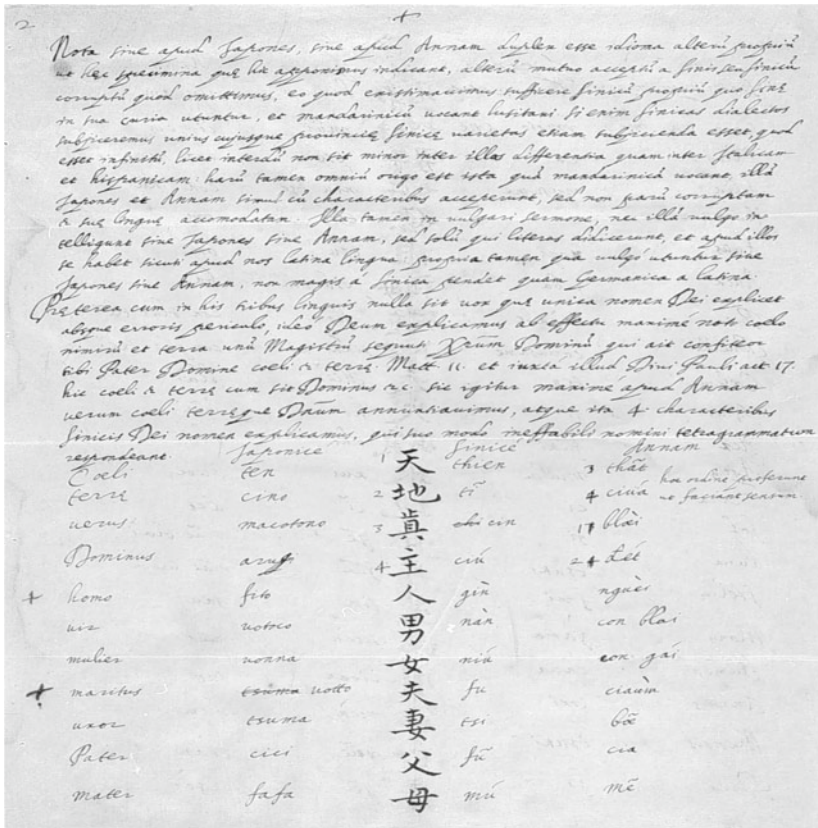 2
+
Nota siue apud Japones, siue apud Annam duplex esse idioma alterũ propriũ
ut hęc specimina quę hic apponimus indicant, alterũ mutuo acceptũ a sinis seu sinicũ
corruptũ quod omittimus, eo quod existimauimus sufficere sinicũ propriũ quo sinę
in sua curia utuntur, et mandarinicũ vocant lusitani si enim sinicas dialectos
subijceremus unius cujusque prouincię sinicę varietas etiam subijcienda esset, quod
esset infinitũ, licet interdũ non sit minor inter illas differentia quam inter Italicam
et hispanicam. harũ tamen omniũ origo est ista quã mandarinicã vocant, illã
Japones et Annam simul cũ characteribus acceperunt, sed non parũ corruptam
& suę linguę accomodatam. Illa tamen in vulgari sermone, nec illã vulgo in
telligunt siue Japones siue Annam, sed solũ qui literas didicerunt, et apud illos
se habet sicuti apud nos latina lingua: propria tamen quã vulgò utuntur siue
Japones siue Annam, non magis à sinica pendet quam Germanica a latina.
Pręterea cum in his tribus linguis nulla sit vox quę unica nomen Dei explicet
absque erroris periculo, ideo Deum explicamus ab effectu maximè noti coelo
nimirũ et terra unũ Magistrũ sequuti Xp̃rum Dominũ qui ait confiteor
tibi Pater Domine coeli & terrę. Matt. 11. et iuxta illud Diui Pauli act 17.
hic coeli & terrę cum sit Dominus &c. sic igitur maxime apud Annam
verum coeli terręque Dñum annuntiauimus, atque ita 4. characteribus
sinicis Dei nomen explicamus, qui suo modo ineffabili nomini tetragrammaton
respondeant. Japonice Sinicè Annam
Coeli ten 1 天 thien 3 thật
terrę cino 2 地 tí 4 ciúa hoc ordine proferunt ut faciant sensum.
verus macotono 3 眞 cin 1 blời
Dominus 4 主 ciú 2 đét
+ homo fito 人 gin ngừời
vir votoco 男 nàn con blai
mulier vonna 女 niú con gái
+ maritus votto 夫 fu
uxor tsuma 妻 tsi bẽ
Pater cici 父 fũ cia
mater fafa 母 mú mẽ